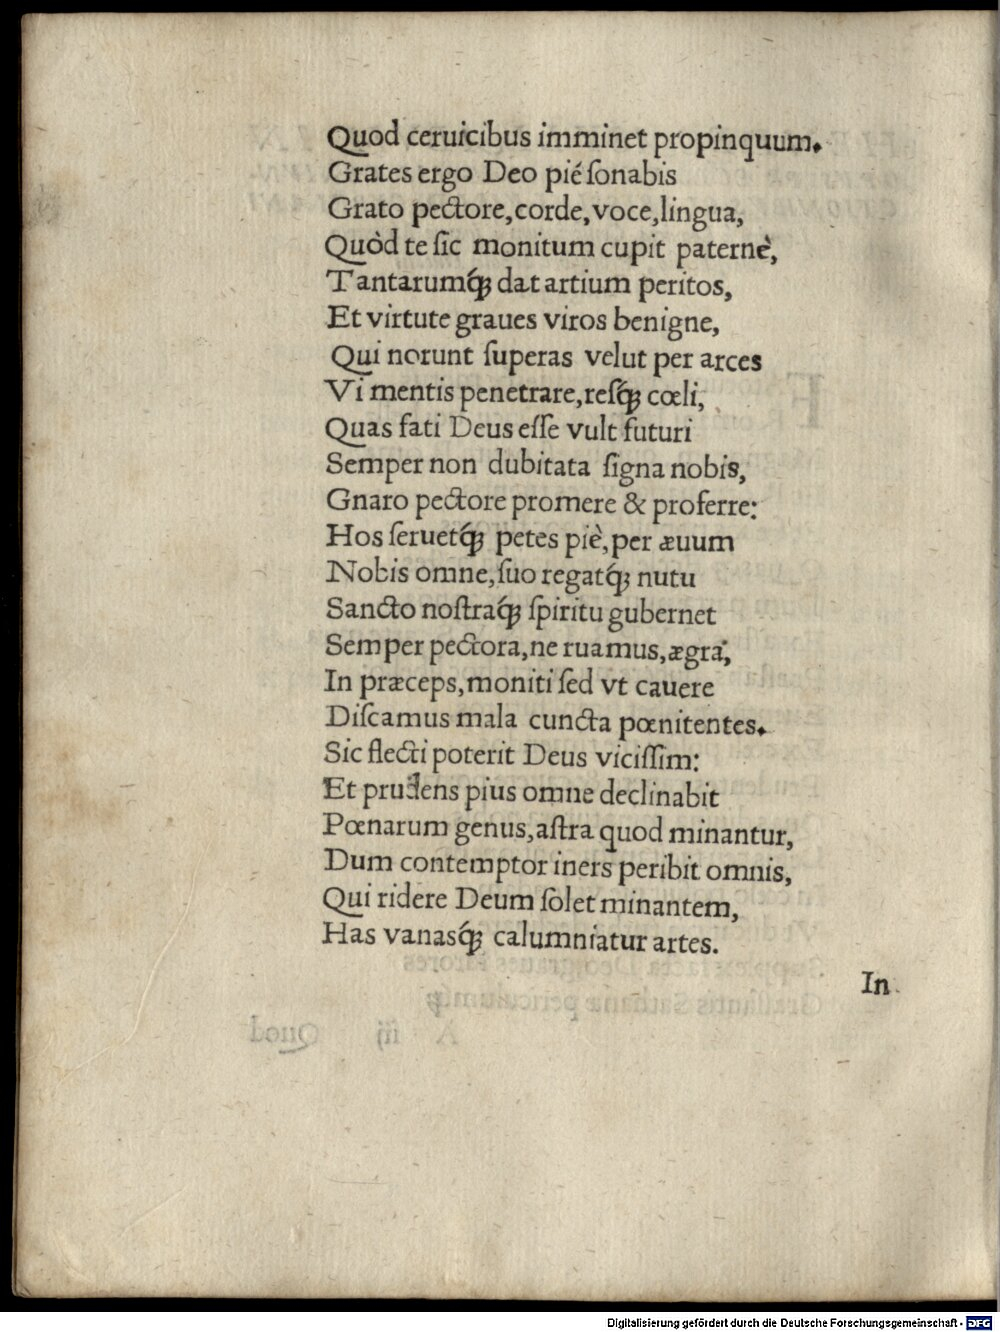 Quod ceruicibus imminet propinquum.
Grates ergo Deo pié ſonabis
Grato pectore, corde, voce, lingua,
Quòd te ſic monitum cupit paternè,
Tantarumq́ꝫ dat artium peritos,
Et virtute graues viros benigne,
Qui norunt ſuperas velut per arces
Vi mentis penetrare, reſq́ꝫ cœli,
Quas fati Deus eſſe vult futuri
Semper non dubitata ſigna nobis,
Gnaro pectore promere & proferre:
Hos ſeruetq́ꝫ petes piè, per æuum
Nobis omne, ſuo regatq́ꝫ nutu
Sancto noſtraq́ꝫ ſpiritu gubernet
Semper pectora, ne ruamus, ægra,
In præceps, moniti ſed vt cauere
Diſcamus mala cuncta pœnitentes.
Sic flecti poterit Deus viciſſim:
Et prudens pius omne declinabit
Pœnarum genus, aſtra quod minantur,
Dum contemptor iners peribit omnis,
Qui ridere Deum ſolet minantem,
Has vanasq́ꝫ calumniatur artes.
In
Digitalisierung gefördert durch die Deutsche Forschungsgemeinschaft - DFG